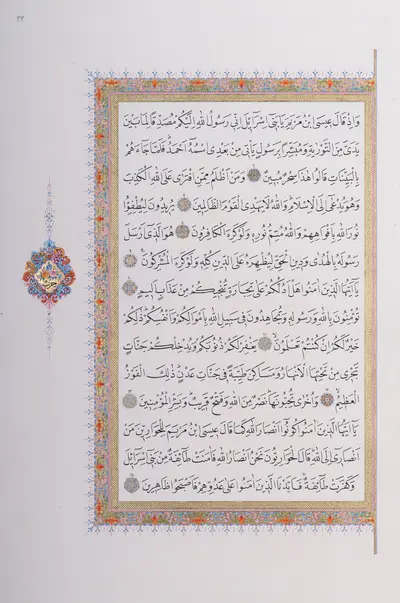 وَاِذْ قَالَ عِيسَى ابْنُ مَرْيَمَ يَا بَنِي اِسْرَآئِيلَ اِنِّي رَسُولُ اللهِ اِلَيْكُمْ مُصَدِّقًا لِمَا بَيْنَ
يَدَيَّ مِنَ التَّوْرٰيةِ وَمُبَشِّرًا بِرَسُولٍ يَأْتِي مِنْ بَعْدِي اسْمُهُ اَحْمَدُ فَلَمَّا جَاءَهُمْ
بِالْبَيِّنَاتِ قَالُوا هٰذَا سِحْرٌ مُبِينٌ وَمَنْ اَظْلَمُ مِمَّنِ افْتَرٰى عَلَى اللهِ الْكَذِبَ
وَهُوَ يُدْعٰى اِلَى الْاِسْلَامِ وَاللهُ لَا يَهْدِي الْقَوْمَ الظَّالِمِينَ يُرِيدُونَ لِيُطْفِؤُا
نُورَ اللهِ بِاَفْوَاهِهِمْ وَاللهُ مُتِمُّ نُورِهِ وَلَوْ كَرِهَ الْكَافِرُونَ هُوَ الَّذِي اَرْسَلَ
رَسُولَهُ بِالْهُدٰى وَدِينِ الْحَقِّ لِيُظْهِرَهُ عَلَى الدِّينِ كُلِّهِ وَلَوْ كَرِهَ الْمُشْرِكُونَ
يَا اَيُّهَا الَّذِينَ اٰمَنُوا هَلْ اَدُلُّكُمْ عَلٰى تِجَارَةٍ تُنْجِيكُمْ مِنْ عَذَابٍ اَلِيمٍ
تُؤْمِنُونَ بِاللهِ وَرَسُولِهِ وَتُجَاهِدُونَ فِي سَبِيلِ اللهِ بِاَمْوَالِكُمْ وَاَنْفُسِكُمْ ذٰلِكُمْ
خَيْرٌ لَكُمْ اِنْ كُنْتُمْ تَعْلَمُونَ يَغْفِرْ لَكُمْ ذُنُوبَكُمْ وَيُدْخِلْكُمْ جَنَّاتٍ
تَجْرِي مِنْ تَحْتِهَا الْاَنْهَارُ وَمَسَاكِنَ طَيِّبَةً فِي جَنَّاتِ عَدْنٍ ذٰلِكَ الْفَوْزُ
الْعَظِيمُ وَاُخْرٰى تُحِبُّونَهَا نَصْرٌ مِنَ اللهِ وَفَتْحٌ قَرِيبٌ وَبَشِّرِ الْمُؤْمِنِينَ
يَا اَيُّهَا الَّذِينَ اٰمَنُوا كُونُوا اَنْصَارَ اللهِ كَمَا قَالَ عِيسَى ابْنُ مَرْيَمَ لِلْحَوَارِيِّينَ مَنْ
اَنْصَارِي اِلَى اللهِ قَالَ الْحَوَارِيُّونَ نَحْنُ اَنْصَارُ اللهِ فَاٰمَنَتْ طَائِفَةٌ مِنْ بَنِي اِسْرَآئِيلَ
وَكَفَرَتْ طَائِفَةٌ فَاَيَّدْنَا الَّذِينَ اٰمَنُوا عَلٰى عَدُوِّهِمْ فَاَصْبَحُوا ظَاهِرِينَ